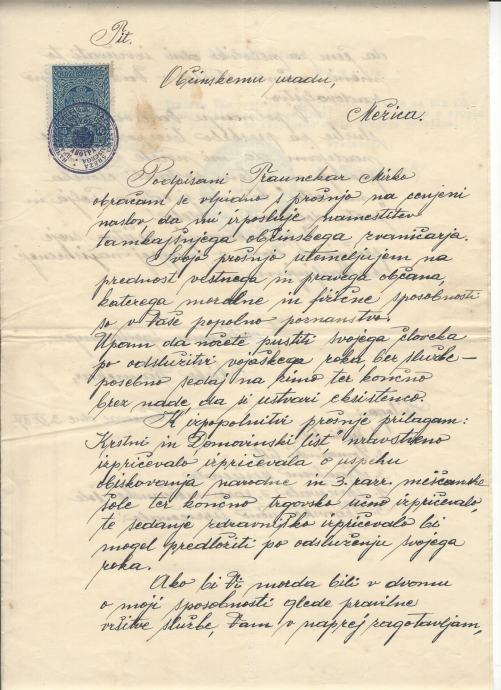 Tit.
Občinskemu uradu,
Podpisani Mirko
obračam se vljudno s prošnjo na cenjeni
naslov da mi izposluje namestitev
tamkajšnjega občinskega zvaničarja.
Svojo prošnjo utemeljujem na
prednost vestnega in pravega občana,
katerega moralne in fizične sposobnosti
so v Vaše popolno poznanstvo.
Upam da nočete pustiti svojega človeka
po odslužitvi vojaškega roka brez službe –
posebno sedaj na zimo ter končno
brez nade da si ustvari eksistenco.
K izpopolnitvi prošnje prilagam:
Krstni in Domovinski list" nravstveno
izpričevalo izpričevala o uspehu
obiskovanja narodne in 3. razr. meščanske
šole ter končno trgovsko učno izpričevalo,
te sedanje zdravniško izpričevalo bi
mogel predložiti po odsluženju svojega
roka.
Ako bi Vi morda bili v dvomu
o moji sposobnosti glede pravilne
vršitve službe, Vam v naprej zagotavljam,